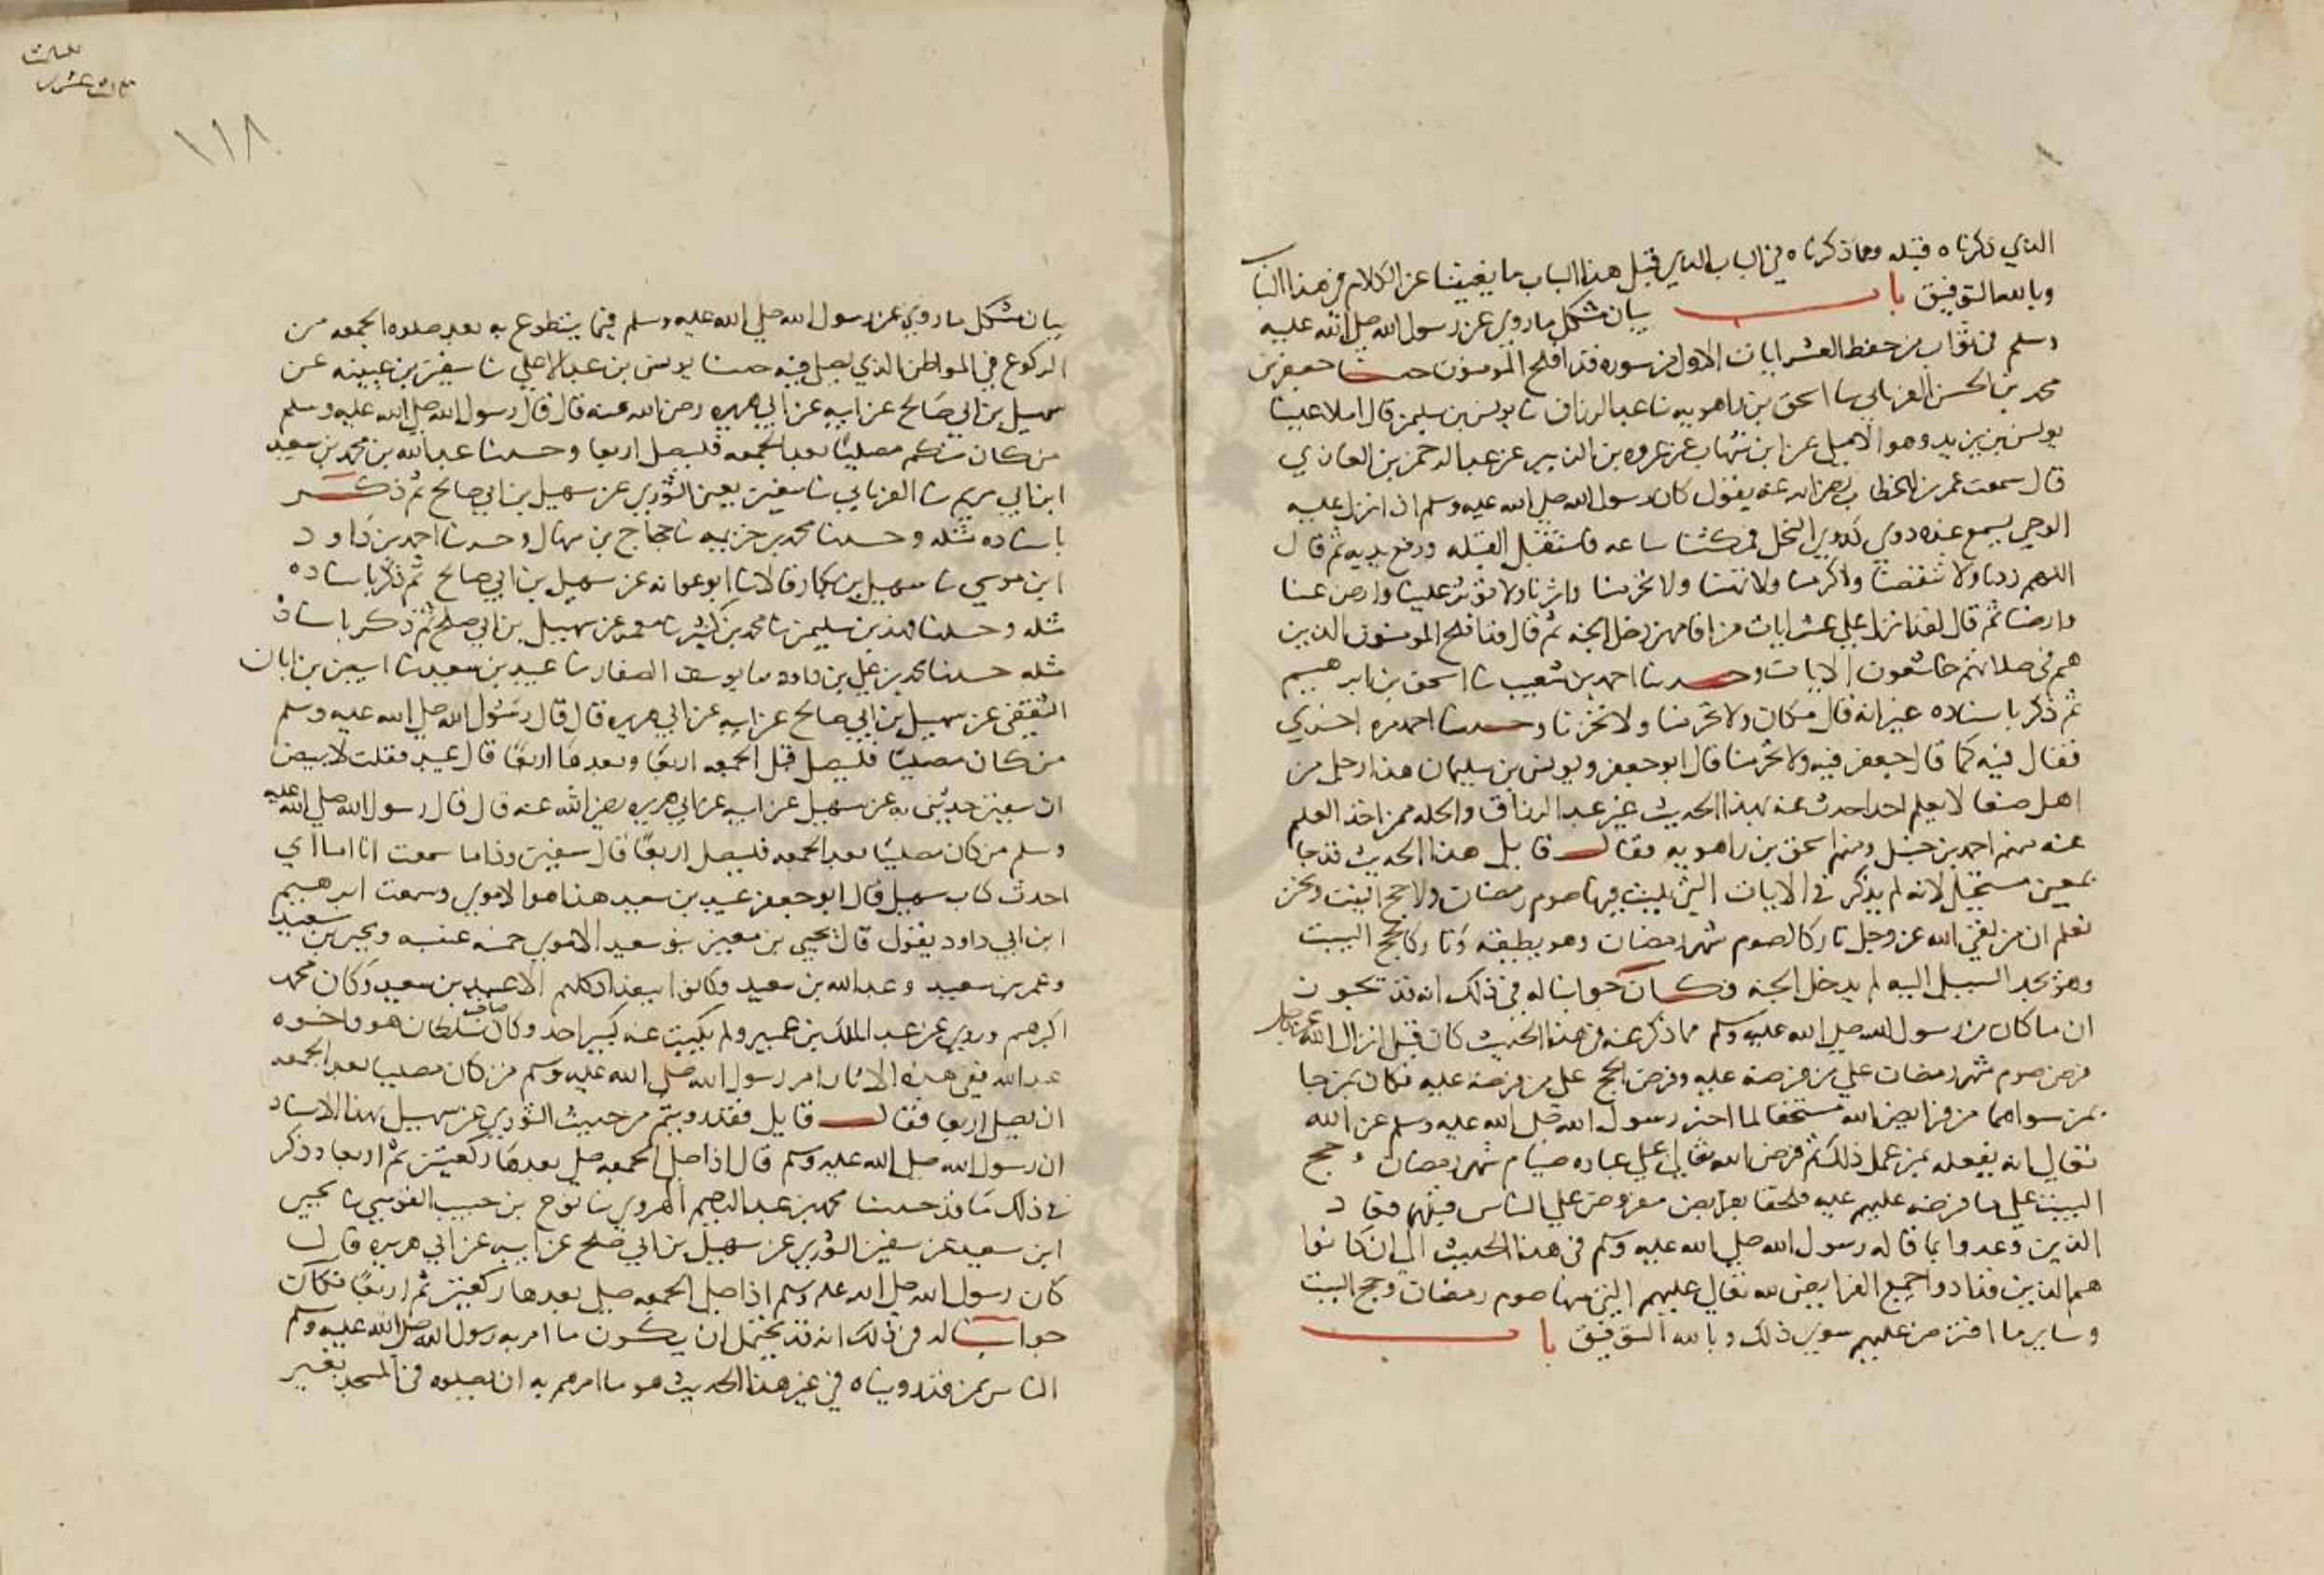 الذي ذكرناه قبله ومما ذكرناه في الباب الذي قبل هذا الباب ما يغنينا عن الكلام في هذا الباب
وبالله التوفيق باب بيان مشكل ما روي عن رسول الله صلى الله عليه
وسلم في ثواب من حفظ العشر ايات الاول من سوره قد افلح المومنون حدثنا جعفر بن
محمد بن الحسن الفريابي ثنا اسحق بن راهويه ثنا عبد الرزاق ثنا يونس بن سليمن قال املا علينا
يونس بن يزيد وهو الايلي عن ابن شهاب عن عروه بن الزبير عن عبد الرحمن بن القاري
قال سمعت عمر بن الخطاب رضي الله عنه يقول كان رسول الله صلى الله عليه وسلم اذا نزل عليه
الوحي يسمع عنده دوي كدوي النحل فمكثنا ساعه فاستقبل القبله ورفع يديه ثم قال
اللهم زدنا ولا تنقصنا واكرمنا ولا تهنا ولا تحرمنا واثرنا ولا توثر علينا وارض عنا
وارضنا ثم قال لقد انزل علي عشر ايات من اقامهن دخل الجنه ثم قال قد افلح المومنون الذين
هم في صلاتهم خاشعون الايات وحدثنا احمد بن شعيب ثنا اسحق بن ابرهيم
ثم ذكر باسناده غير انه قال مكان ولا تحرمنا ولا تخزنا وحدثنا احمد مره اخري
فقال فيه كما قال جعفر فيه ولا تحرمنا قال ابو جعفر ويونس بن سليمان هذا رجل من
اهل صنعا لا يعلم احدا حدث عنه بهذا الحديث غير عبد الرزاق واجله ممن اخذ العلم
عنه منهم احمد بن حنبل ومنهم اسحق بن راهويه فقال قايل هذا الحديث قد جا
بمعنى مستحيل لانه لم يذكر في الايات التي تليت فيها صوم رمضان ولا حج البيت ونحن
نعلم ان من لقي الله عز وجل تاركا لصوم شهر رمضان وهو يطيقه وتاركا لحج البيت
وهو يجد السبيل اليه لم يدخل الجنه فكان جوابنا له في ذلك انه قد يجوز
ان ما كان من رسول الله صلى الله عليه وسلم مما ذكر عنه في هذا الحديث كان قبل انزال الله عز وجل
فرض صوم شهر رمضان على من فرضه عليه وفرض الحج على من فرضه عليه فكان من جا
بمن سواهما من فرايض الله مستحقا لما اخبر رسول الله صلى الله عليه وسلم عن الله
تعالي انه يفعله بمن عمل ذلك ثم فرض الله تعالي على عباده صيام شهر رمضان وحج
البيت على ما فرضه عليهم عليه فلحقا بفرايض مفروض على الناس قبلهما فعاد
الذين وعدوا بما قاله رسول الله صلى الله عليه وسلم في هذا الحديث الي ان كانوا
هم الذين قد ادوا جميع الفرايض لله تعالي عليهم التي منها صوم رمضان وحج البيت
وساير ما افترض عليهم سوي ذلك وبالله التوفيق باب
١١٨
بيان مشكل ما روي عن رسول الله صلى الله عليه وسلم فيما يتطوع به بعد صلوه الجمعه من
الركوع في المواطن الذي يصلى فيه حدثنا يونس بن عبد الاعلي ثنا سفين بن عيينه عن
سهيل بن ابي صالح عن ابيه عن ابي هريره رضي الله عنه قال قال رسول الله صلى الله عليه وسلم
من كان منكم مصليا بعد الجمعه فليصل اربعا وحدثنا عبد الله بن محمد بن سعيد
ابن ابي مريم ثنا الفريابي ثنا سفين يعني الثوري عن سهيل بن ابي صالح ثم ذكر
باسناده مثله وحدثنا محمد بن خزيمه ثنا حجاج بن منهال وحدثنا احمد بن داود
ابن موسي ثنا سهيل بن بكار قالا ثنا ابو عوانه عن سهيل بن ابي صالح ثم ذكر باسناده
مثله وحدثنا فهد بن سليمن ثنا محمد بن كثير ثنا معمر عن سهيل بن ابي صلح ثم ذكر باسناده
مثله حدثنا محمد بن علي بن داود ثنا يوسف الصفار ثنا عبيد بن سعيد ثنا ابيض بن ابان
الثقفي عن سهيل بن ابي صالح عن ابيه عن ابي هريره قال قال رسول الله صلى الله عليه وسلم
من كان مصليا فليصل قبل الجمعه اربعا وبعدها اربعا قال عبيد فقلت لابيض
ان سفين حدثني به عن سهيل عن ابيه عن ابي هريره رضي الله عنه قال قال رسول الله صلى الله عليه
وسلم من كان مصليا بعد الجمعه فليصل اربعا قال سفين وذا ما سمعت انا اما اي
احدث كتاب سهيل قال ابو جعفر عبيد بن سعيد هذا هو الاموي وسمعت ابرهيم
ابن ابي داود يقول قال يحيي بن معين بنو سعيد الاموي خمسه عنبسه ويحيي بن سعيد
وعمر بن سعيد وعبد الله بن سعيد وكانوا ببغداد كلهم الا عبيد بن سعيد وكان محمد
اكبرهم وروي عن عبد الملك بن عمير ولم يكتب عنه كبير احد وكان صاحب سلطان هو واخوه
عبد الله ففي هذه الاثار امر رسول الله صلى الله عليه وسلم من كان مصليا بعد الجمعه
ان يصلي اربعا فقال قايل فقد رويتم من حديث الثوري عن سهيل بهذا الاسناد
ان رسول الله صلى الله عليه وسلم قال اذا صلى الجمعه صلى بعدها ركعتين ثم اربعا وذكر
في ذلك ما قد حدثنا محمد بن عبد الرحيم الهروي ثنا نوح بن حبيب القومسي ثنا يحيي
ابن سعيد عن سفين الثوري عن سهيل بن ابي صلح عن ابيه عن ابي هريره قال
كان رسول الله صلى الله عليه وسلم اذا صلى الجمعه صلى بعدها ركعتين ثم اربعا فكان
جوابنا له في ذلك انه قد يحتمل ان يكون ما امر به رسول الله صلى الله عليه وسلم
الناس ممن قد رويناه في غير هذا الحديث هو ما امرهم به ان يصلوه في المسجد بغير